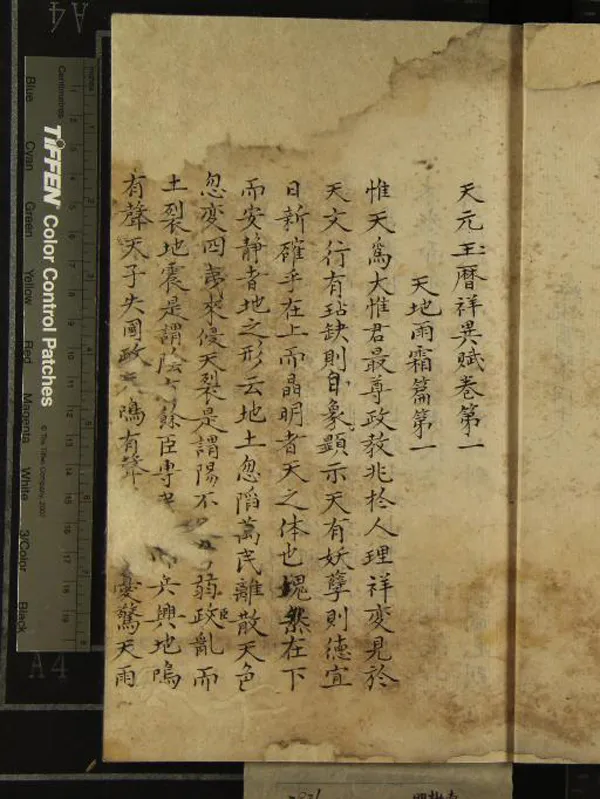 天元玉曆祥異賦卷第一
天地雨霜篇第一
惟天爲大惟君最尊政教兆於人理祥变見於
天文行有玷缺則自象顯示天有妖孽則德宜
日新確乎在上而晶明者天之体也塊然在下
而安静者地之形云地土忽陷萬民離散天色
忽变四夷來侵天裂是謂陽不弱政亂而
臣
土裂地震是謂陰有餘臣專兵興地鳴
有聲天子失國政鳴有聲憂驚天雨
Centimetres
Inches
TIFFEN Color Control Patches
© The Tiffen Company, 2007
Blue
Cyan
Green
Yellow
Red
Magenta
White
3/Color
Black
A4
A4